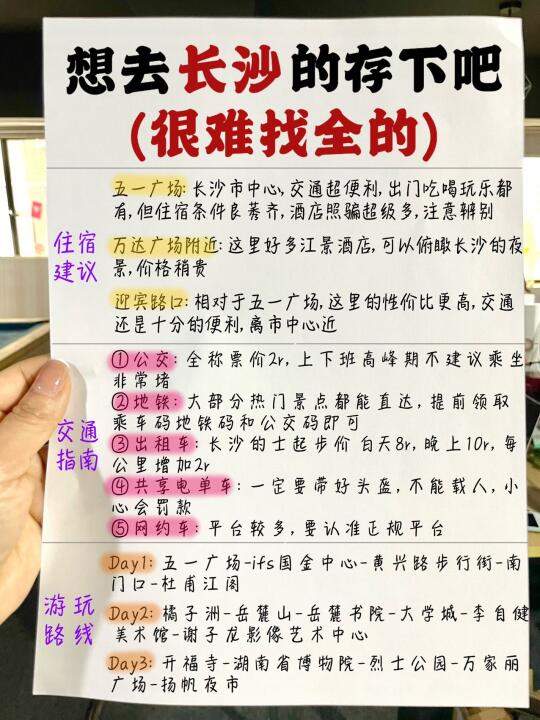 想去长沙的存下吧
(很难找全的)
五一广场:长沙市中心,交通超便利,出门吃喝玩乐都
有,但住宿条件良莠齐,酒店照骗超级多,注意辨别
住宿
建议
万达广场附近:这里好多江景酒店,可以俯瞰长沙的夜
景,价格稍贵
迎宾路口:相对于五一广场,这里的性价比更高,交通
还是十分的便利,离市中心近
交通
指南
①公交:全称票价2r,上下班高峰期不建议乘坐
非常堵
②地铁:大部分热门景点都能直达,提前领取
乘车码地铁码和公交码即可
③出租车:长沙的士起步价 白天8r,晚上10r,每
公里增加2r
④共享电单车:一定要带好头盔,不能载人,小
心会罚款
⑤网约车:平台较多,要认准正规平台
游玩
路线
Day1:五一广场-ifs国金中心-黄兴路步行街-南
门口-杜甫江阁
Day2:橘子洲-岳麓山-岳麓书院-大学城-李自健
美术馆-谢子龙影像艺术中心
Day3:开福寺-湖南省博物院-烈士公园-万家丽
广场-扬帆夜市